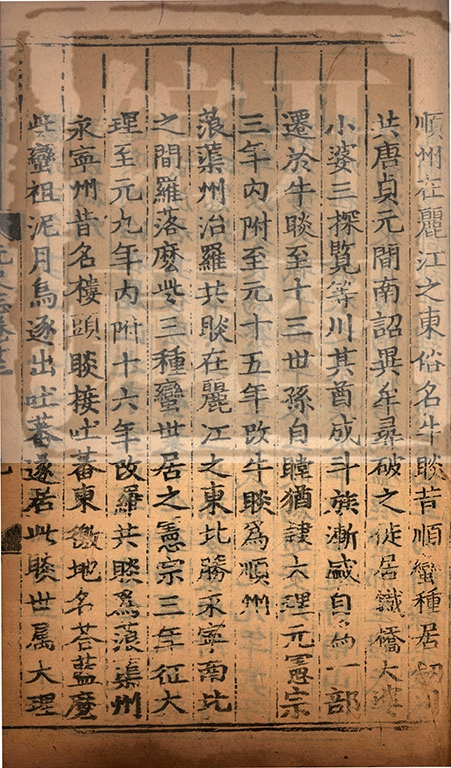 順州在麗江之東俗名牛賧昔順蠻種居劒川
共唐貞元間南詔異牟尋破之徙居鐵橋大婆
小婆三探覽等川其酋成斗族漸盛自為一部
遷於牛賧至十三世孫自瞠猶隷大理元憲宗
三年内附至元十五年改牛賧為順州
蒗蕖州治羅共賧在麗江之東北勝永寧南北
之間羅落麽些三種蠻世居之憲宗三年征大
理至元九年内附十六年改羅共賧為蒗蕖州
永寧州昔名樓頭賧接吐蕃東徼地名荅藍麽
些蠻祖泥月烏逐出吐蕃遂居此賧世属大理